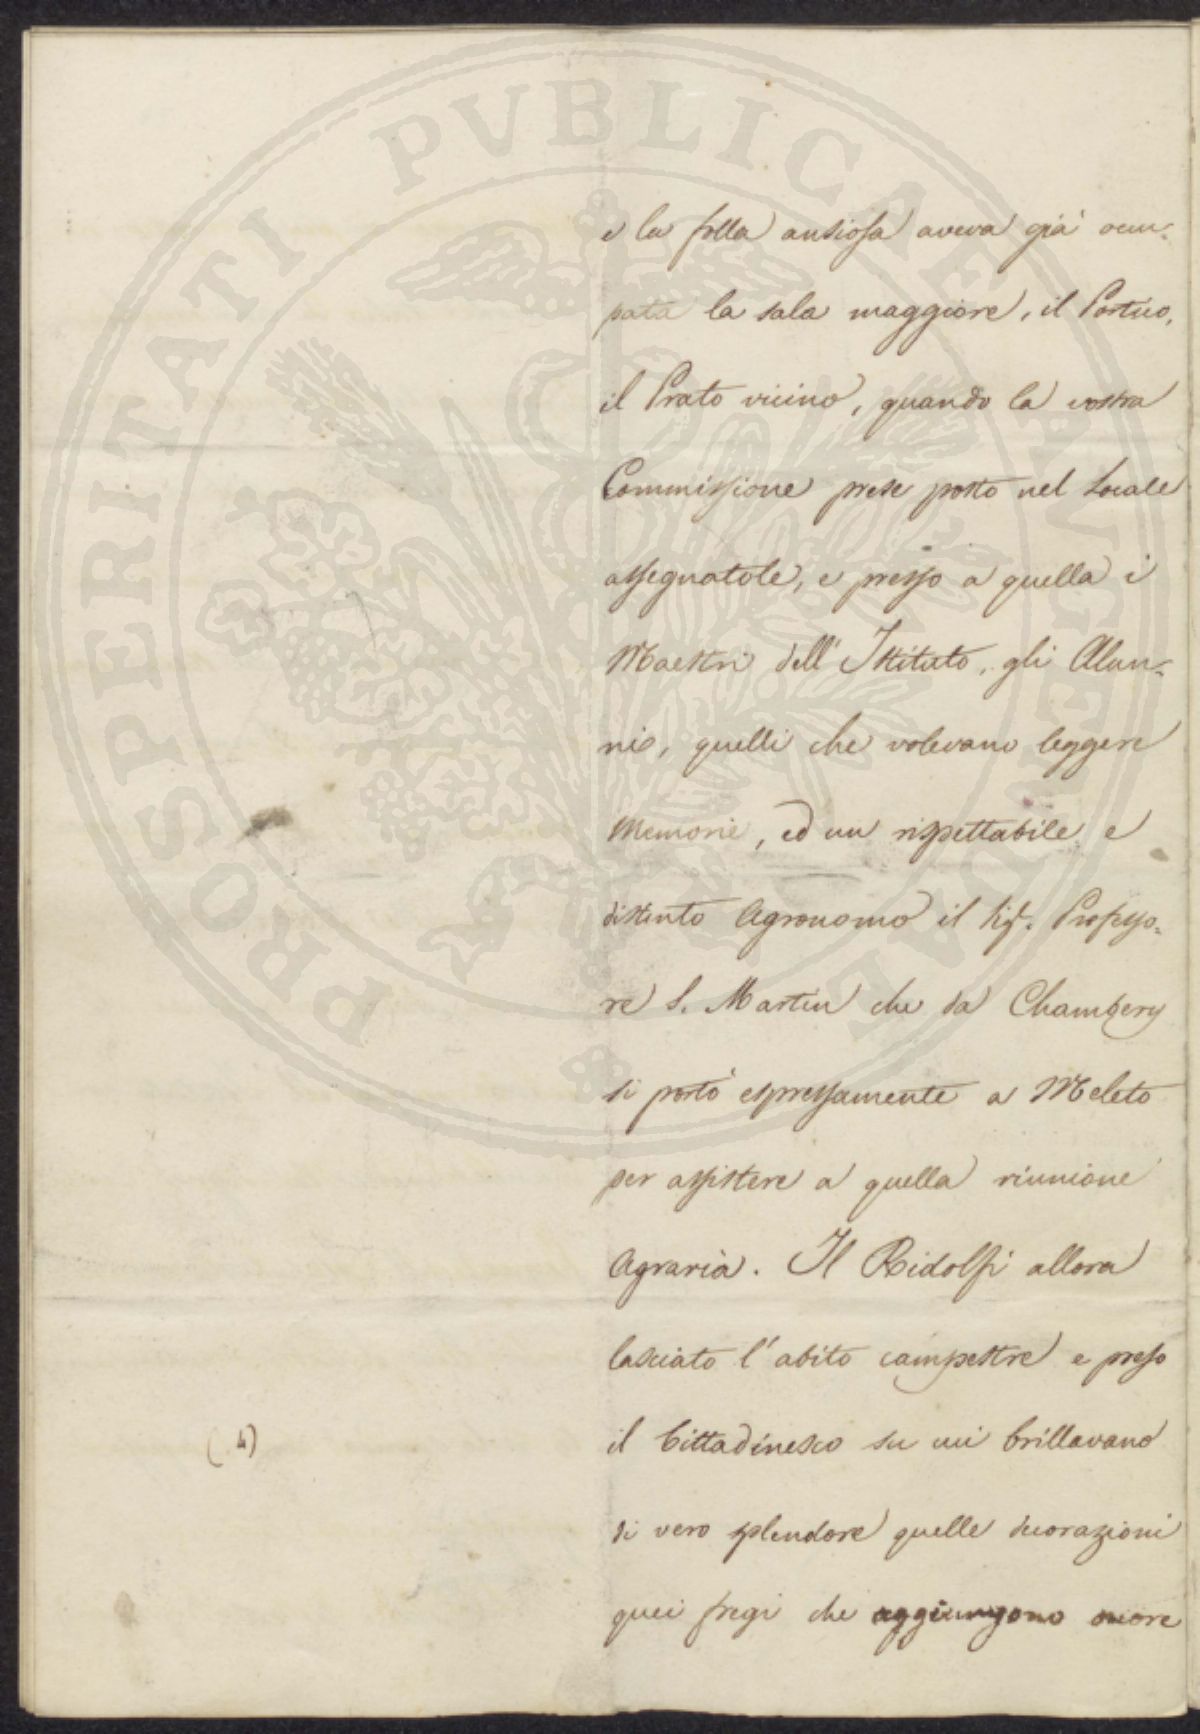 PROSPERITATI PVBLICAE AVGENDAE
e la folla ansiosa aveva già occu-
pata la sala maggiore, il Portico,
il Prato vicino, quando la vostra
Commissione prese posto nel Locale
assegnatole, e presso a quella i
Maestri dell'Istituto, gli Alun-
ni, quelli che volevano leggere
Memorie, ed un rispettabile e
distinto Agronomo il Sigr. Professo-
re S. Martin che da Chambery
si portò espressamente a Meleto
per assistere a quella riunione
Agraria. Il Ridolfi allora
lasciato l'abito campestre e preso
il Cittadinesco su cui brillavano
di vero splendore quelle decorazioni
quei fregi che aggiungono onore
(4)